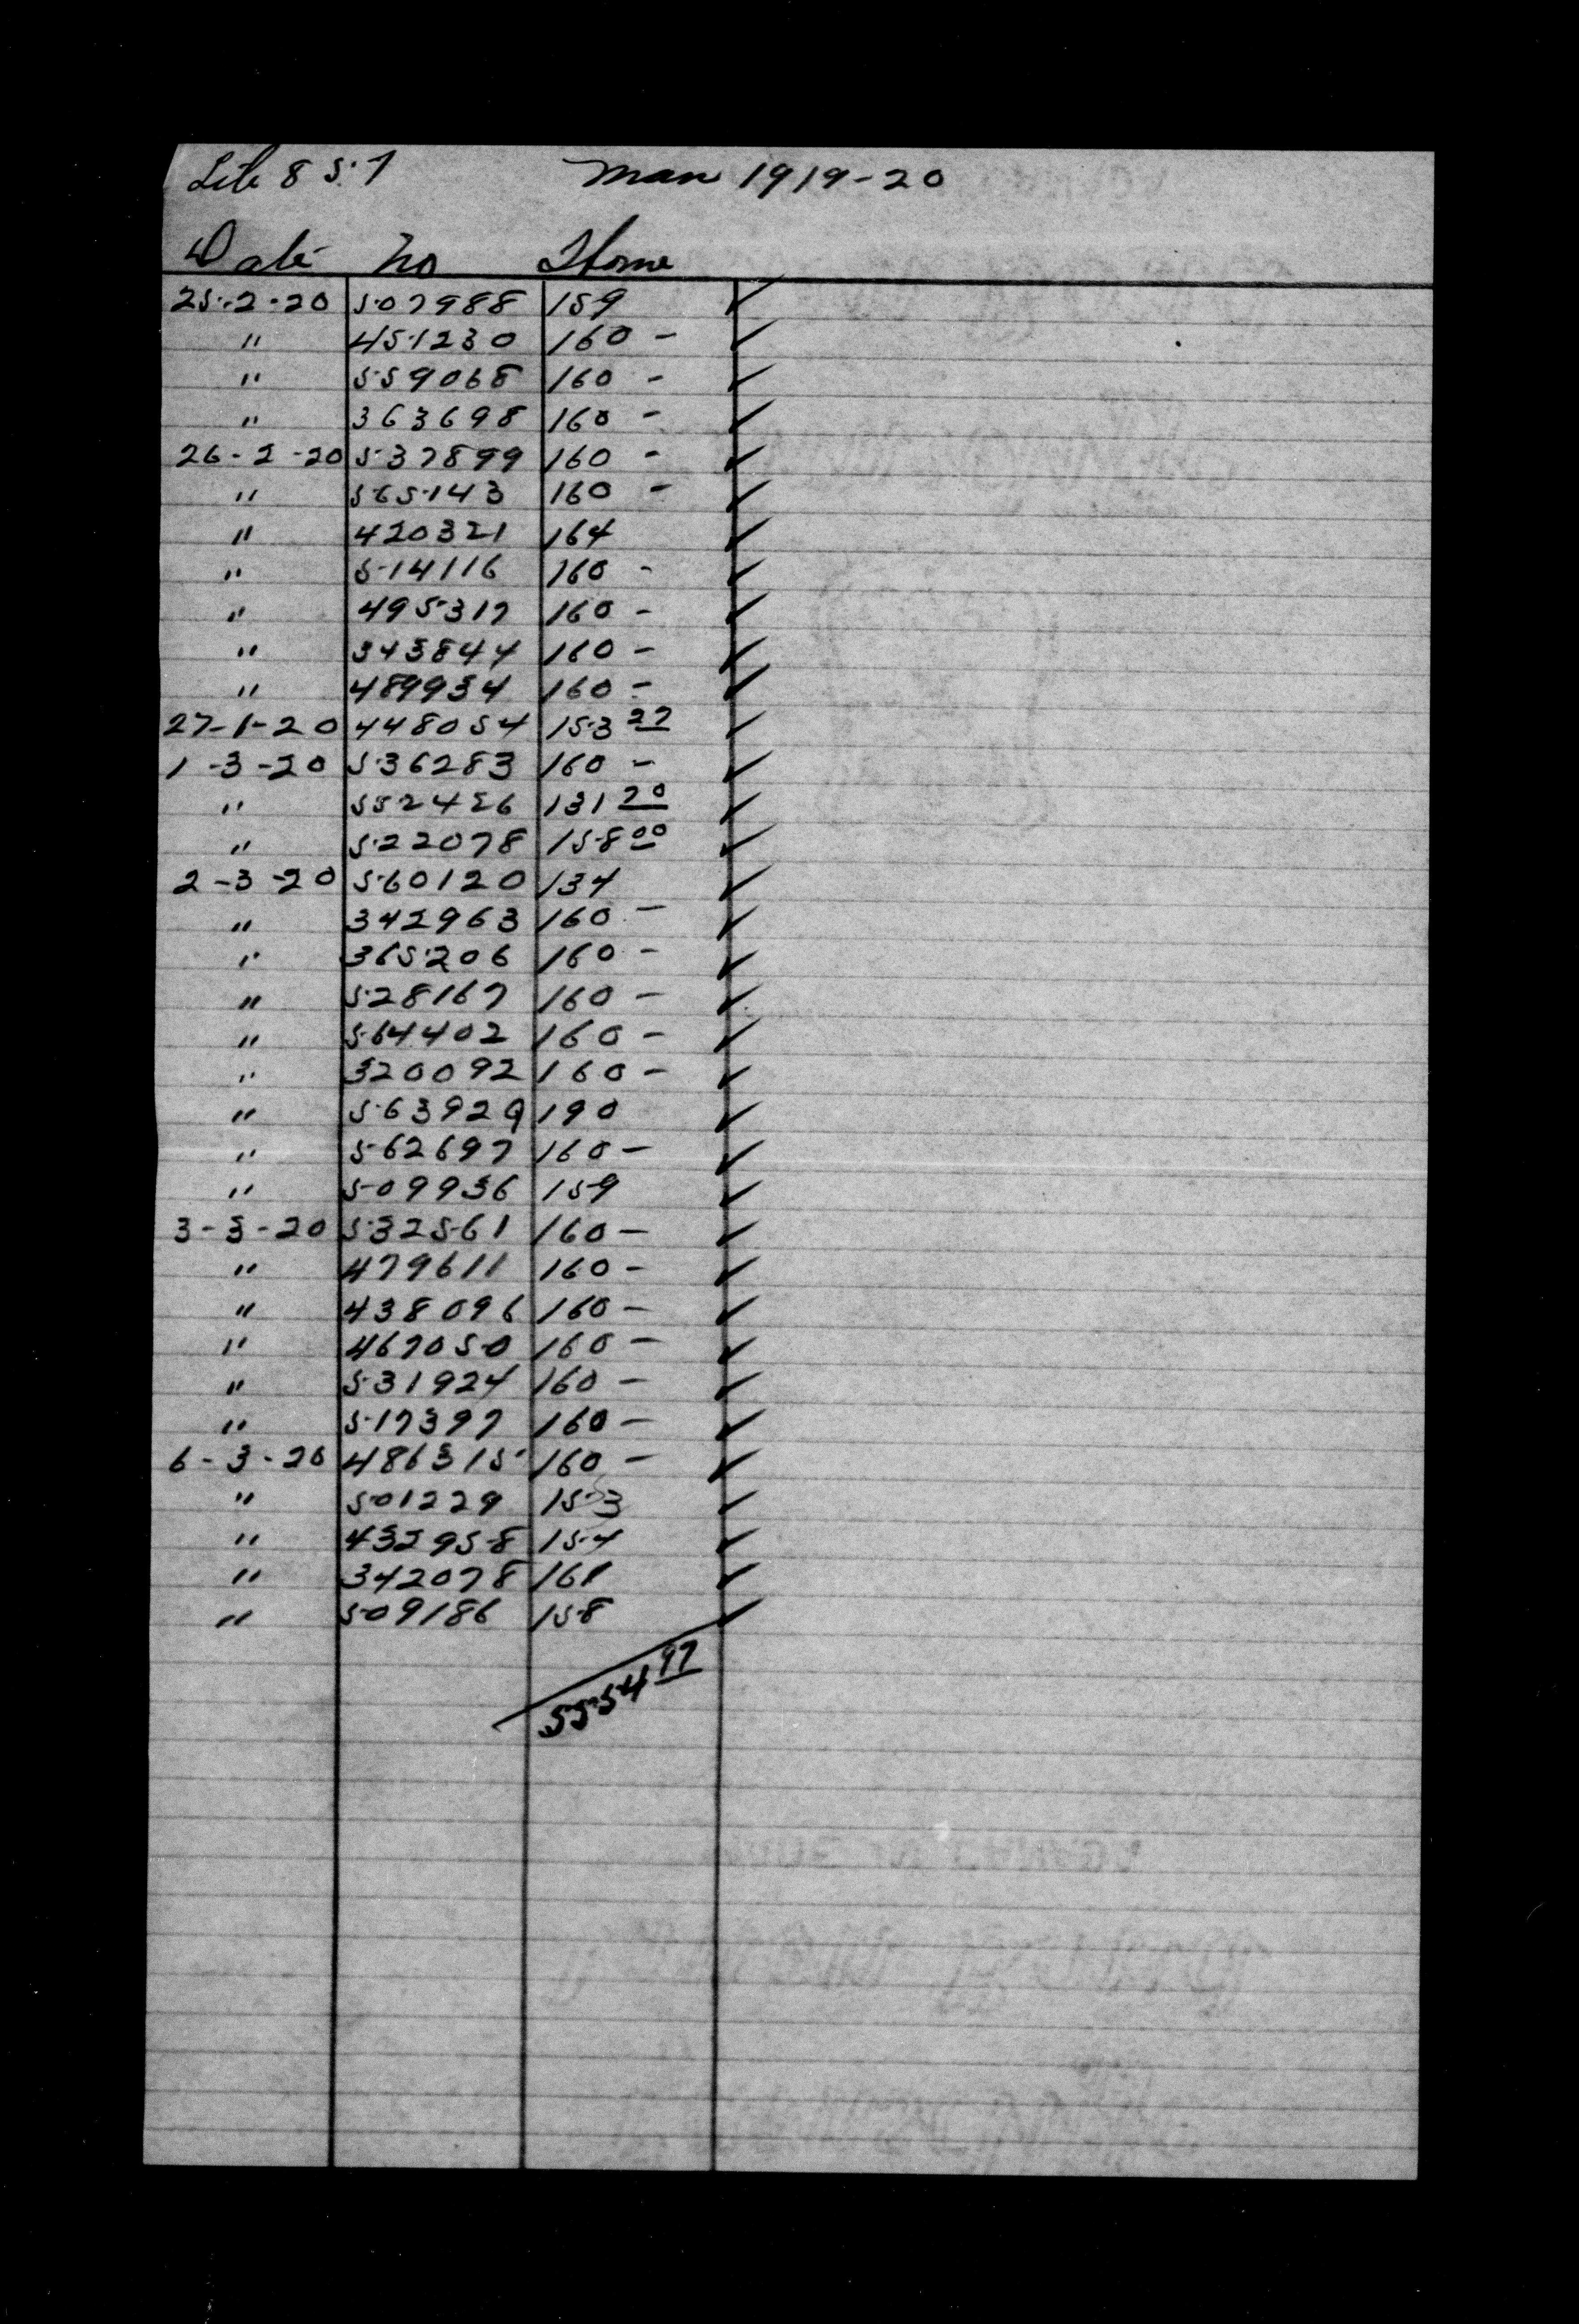 Lib 8 57 Man 1919-20
Date No Home
25-2-20 507988 159 ✓
" 451230 160 - ✓
" 559068 160 - ✓
" 363698 160 - ✓
26-2-20 537899 160 - ✓
" 565143 160 - ✓
" 420321 164 ✓
" 514116 160 - ✓
" 495317 160 - ✓
" 343844 160 - ✓
" 489934 160 - ✓
27-1-20 448054 153 27 ✓
1-3-20 536283 160 - ✓
" 552426 131 70 ✓
" 522078 158 00 ✓
2-3-20 560120 134 ✓
" 342963 160 - ✓
" 365206 160 - ✓
" 528167 160 - ✓
" 564402 160 - ✓
" 320092 160 - ✓
" 563929 190 ✓
" 562697 160 - ✓
" 509936 159 ✓
3-3-20 532561 160 - ✓
" 479611 160 - ✓
" 438096 160 - ✓
" 467050 160 - ✓
" 531924 160 - ✓
" 517397 160 - ✓
6-3-20 486315 160 - ✓
" 501229 153 ✓
" 432958 154 ✓
" 342078 161 ✓
" 509186 158 ✓
5554 97